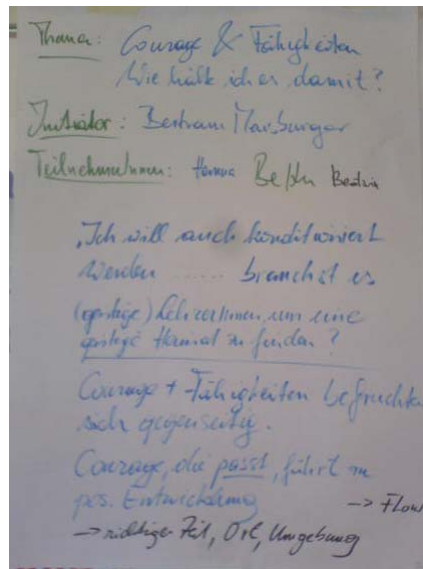 Thema: Courage & Fähigkeiten
Wie halte ich es damit?
Initiator: Bertram Marburger
TeilnehmerInnen: Hanna Beatrix
"Ich will auch konditioniert
werden ...... brauchst es
(geistige) LehrerInnen, um eine
geistige Heimat zu finden?
Courage + Fähigkeiten befruchten
sich gegenseitig.
Courage, die passt, führt zu
pos. Entwicklung -> Flow
-> richtige Zeit, Ort, Umgebung